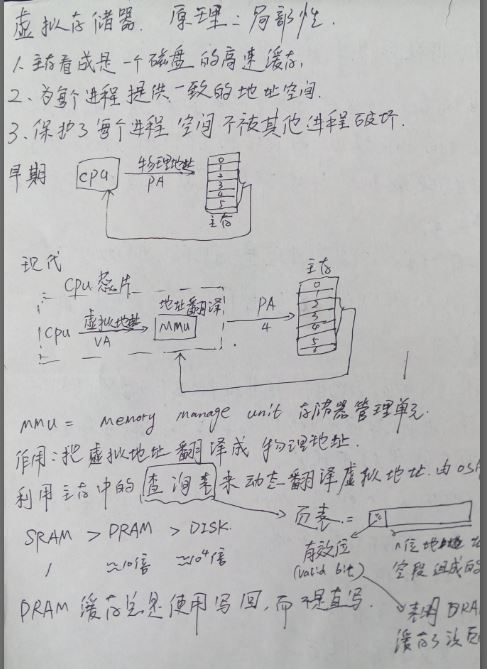 虚拟存储器. 原理：局部性.
1. 主存看成是一个磁盘的高速缓存.
2、为每个进程提供一致的地址空间.
3、保护了每个进程空间不被其他进程破坏.
早期
cpu 物理地址 PA
0
1
2
3
4
5
主存
现代
cpu 芯片
cpu 虚拟地址 VA
地址翻译
MMU
PA
4
主存
0
1
2
3
4
5
6
mmu = memory manage unit 存储器管理单元.
作用：把虚拟地址翻译成物理地址.
利用主存中的查询表来动态翻译虚拟地址. 由OS
页表：=
SRAM > DRAM > DISK.
1 ≈10倍 ≈10⁴倍
有效位
(valid bit)
n位地址
组成的
DRAM 缓存总是使用写回，而不是直写.
表明DRA
缓存了该页